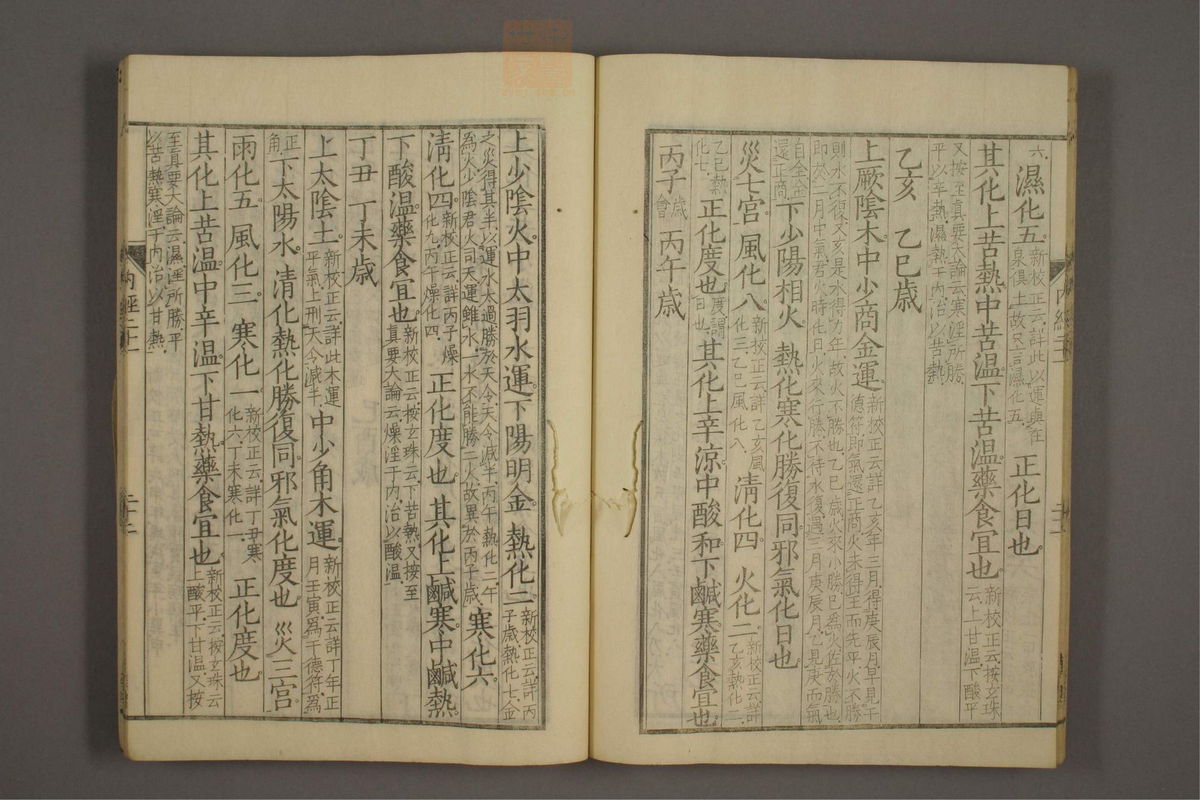 六
濕化五新校正云詳此以運與在泉俱土故只言濕化五正化日也
其化上苦熱中苦温下苦温藥食宜也新校正云按玄珠云上甘温下酸平
又按至真要大論云寒淫所勝平以辛熱濕淫于内治以苦熱
乙亥 乙巳歲
上厥陰木中少商金運新校正云詳乙亥年三月得庚辰月早見干德符即氣還正商火未得至而先平火不勝
則水不復又亥是水得力年故火不勝也乙巳歲火來小勝巳爲火佐於勝也即於二月中氣君火時化日火來行勝不待水復遇三月庚辰月乙見庚而氣
自全金還正商下少陽相火 熱化寒化勝復同邪氣化日也
災七宮 風化八新校正云詳乙亥風化三乙巳風化八清化四 火化二新校正云詳乙亥熱化二
乙巳熱化七正化度也度謂日也其化上辛涼中酸和下鹹寒藥食宜也
丙子歲會 丙午歲
上少陰火中太羽水運下陽明金 熱化二新校正云詳丙子歲熱化七金
之災得其半以運水太過勝於天令天令减半丙午熱化二午爲火少陰君火司天運雖水一水不能勝二火故異於丙子歲寒化六
清化四新校正云詳丙子燥化九丙午燥化四正化度也 其化上鹹寒中鹹熱
下酸温藥食宜也新校正云按玄珠云下苦熱又按至真要大論云燥淫于内治以酸温
丁丑 丁未歲
上太陰土新校正云詳此木運平氣上刑天令減半中少角木運新校正云詳丁年正月壬寅爲干德符爲
正角下太陽水 清化熱化勝復同邪氣化度也 災三宮
雨化五 風化三 寒化一新校正云詳丁丑寒化六丁未寒化一正化度也
其化上苦温中辛温下甘熱藥食宜也新校正云按玄珠云上酸平下甘温又按
至真要大論云濕淫所勝平以苦熱寒淫于内治以甘熱
内經二十一
二十二